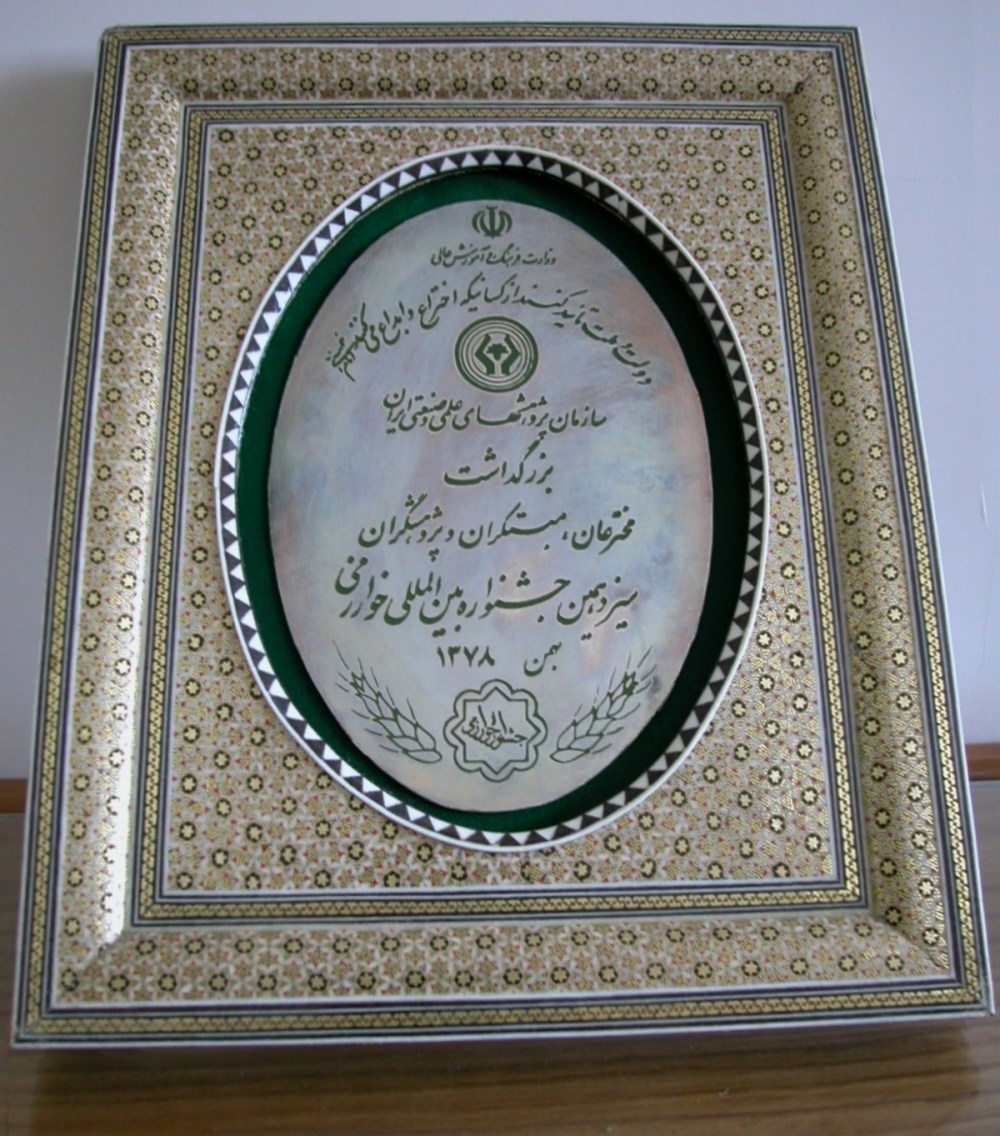 وزارت فرهنگ و آموزش عالی
دولت و ملت تأیید کنند از کسانیکه اختراع و ابداعی
سازمان پژوهشهای علمی و صنعتی ایران
بزرگداشت
مخترعان، مبتکران و پژوهشگران
سیزدهمین جشنواره بین المللی خوارزمی
بهمن ۱۳۷۸
جشنواره خوارزمی